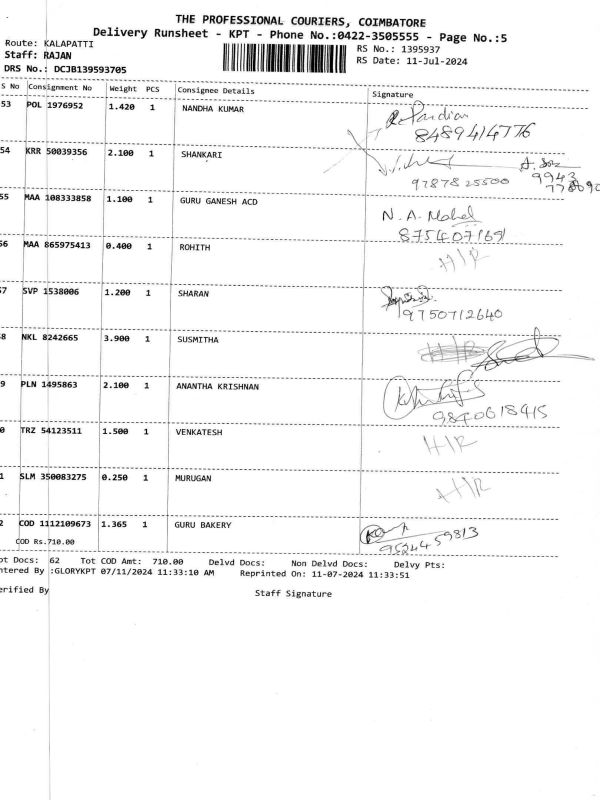 THE PROFESSIONAL COURIERS, COIMBATORE
Delivery Runsheet - KPT - Phone No.:0422-3505555 - Page No.:5
Route: KALAPATTI
RS No.: 1395937
Staff: RAJAN
RS Date: 11-Jul-2024
DRS No.: DCJB139593705
S No Consignment No Weight PCS Consignee Details Signature
53 POL 1976952 1.420 1 NANDHA KUMAR
8489414776
54 KRR 50039356 2.100 1 SHANKARI
9787825500
55 MAA 108333858 1.100 1 GURU GANESH ACD
N. A. Mahel
8754071691
56 MAA 865975413 0.400 1 ROHITH H/R
57 SVP 1538006 1.200 1 SHARAN
9750712640
8 NKL 8242665 3.900 1 SUSMITHA
9 PLN 1495863 2.100 1 ANANTHA KRISHNAN
9840618415
0 TRZ 54123511 1.500 1 VENKATESH H/R
1 SLM 350083275 0.250 1 MURUGAN H/R
2 COD 1112109673 1.365 1 GURU BAKERY
9524459813
COD Rs.710.00
ot Docs: 62 Tot COD Amt: 710.00 Delvd Docs: Non Delvd Docs: Delvy Pts:
ntered By :GLORYKPT 07/11/2024 11:33:10 AM Reprinted On: 11-07-2024 11:33:51
erified By
Staff Signature